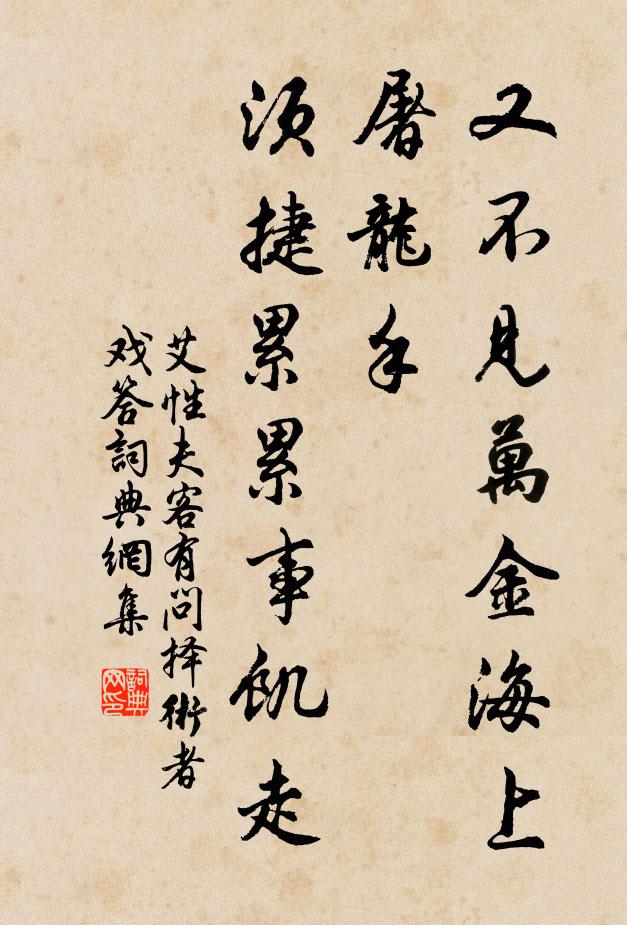 又不見萬金海上
屠龍手
須捷累累事飢走
艾性夫客有問择術者
戏答詞典網集
詞典
网印